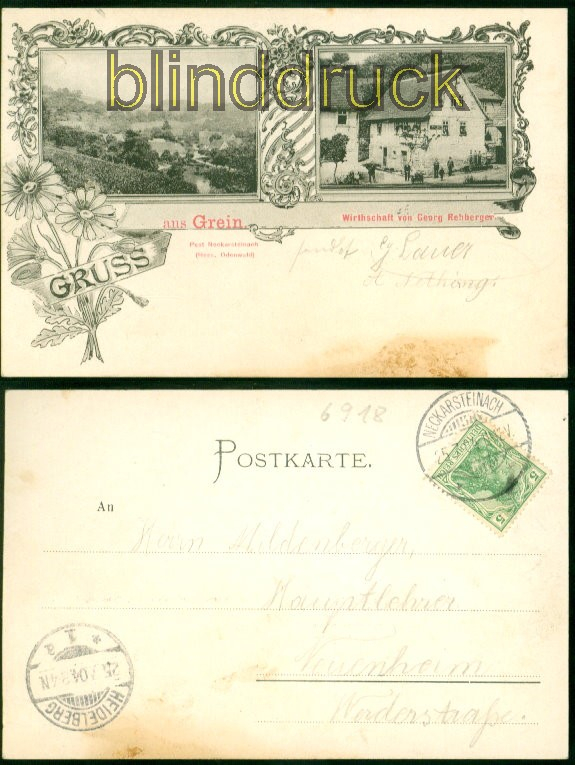 blinddruck
aus Grein.
Wirthschaft von Georg Rehberger.
Post Neckarsteinach
(Hess. Odenwald)
GRUSS
sendet G Lauer
6918
NECKARSTEINACH
POSTKARTE.
5
An
Herrn Mildenberger,
Hauptlehrer
Neuenheim
* 1 a
25.7.04.
N
HEIDELBERG
Neuenheim